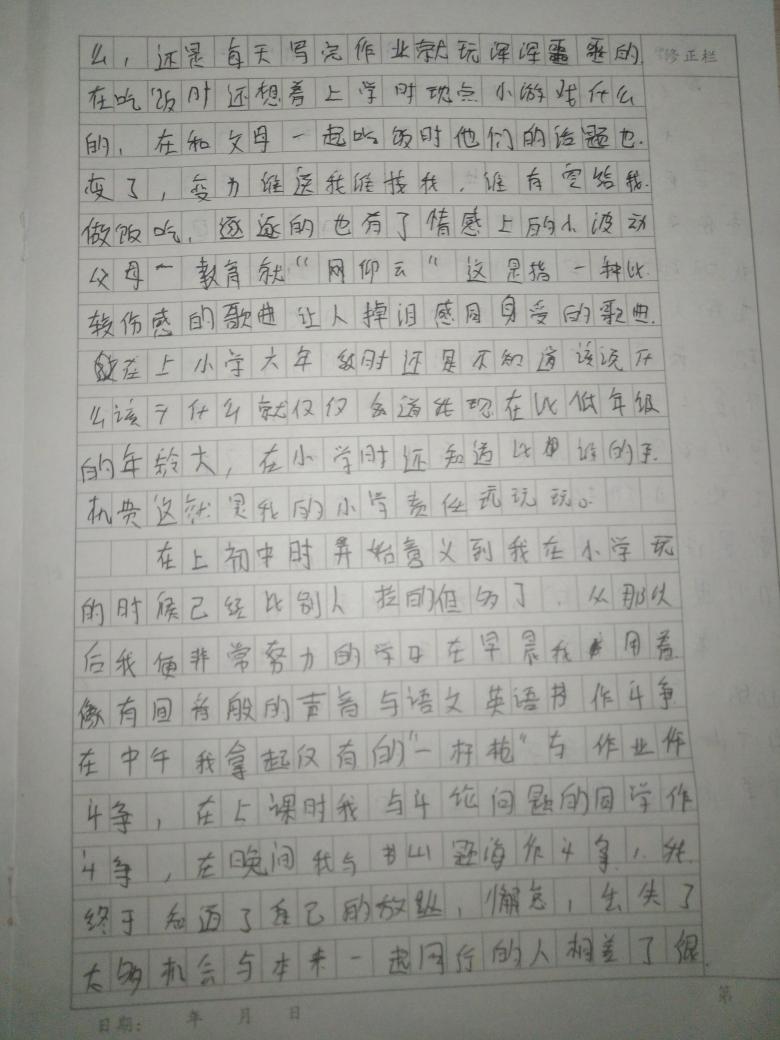 么，还是每天写完作业就玩浑浑噩噩的 修正栏
在吃饭时还想着上学时玩点小游戏什么
的，在和父母一起吃饭时他们的话题也
变了，变为谁送我谁接我，谁有空给我
做饭吃，逐逐的也有了情感上的小波动
父母一教育就“网仰云“这是指一种比
较伤感的歌曲让人掉泪感同身受的歌曲
在上小学六年级时还是不知道该说什
么该干什么就仅仅知道我现在比低年级
的年龄大，在小学时还知道比谁的手
机贵这就是我的小学责任玩玩玩。
在上初中时弄始意义到我在小学玩
的时候已经比别人拉的很多了．从那以
后我便非常努力的学习在早晨我用着
像有回音般的声音与语文英语书作斗争
在中午我拿起仅有的“一杆枪“与作业作
斗争，在上课时我与斗论问题的同学作
斗争，在晚间我与书山题海作斗争，我
终于知道了自己的放纵，懈怠，出失了
太多机会与本来一起同行的人相差了很
日期： 年 月 日 第